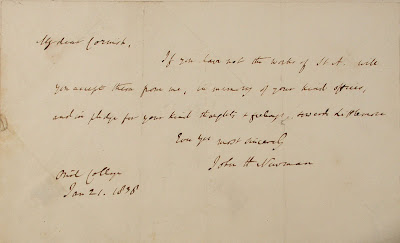 My dear Cornish,
If you have not the works of St A. will
you accept them from me, in memory of your kind offices,
and in pledge for your kind thoughts & feelings towards Littlemore
Ever Yrs most sincerely
John H Newman
Oriel College
Jan 21. 1838